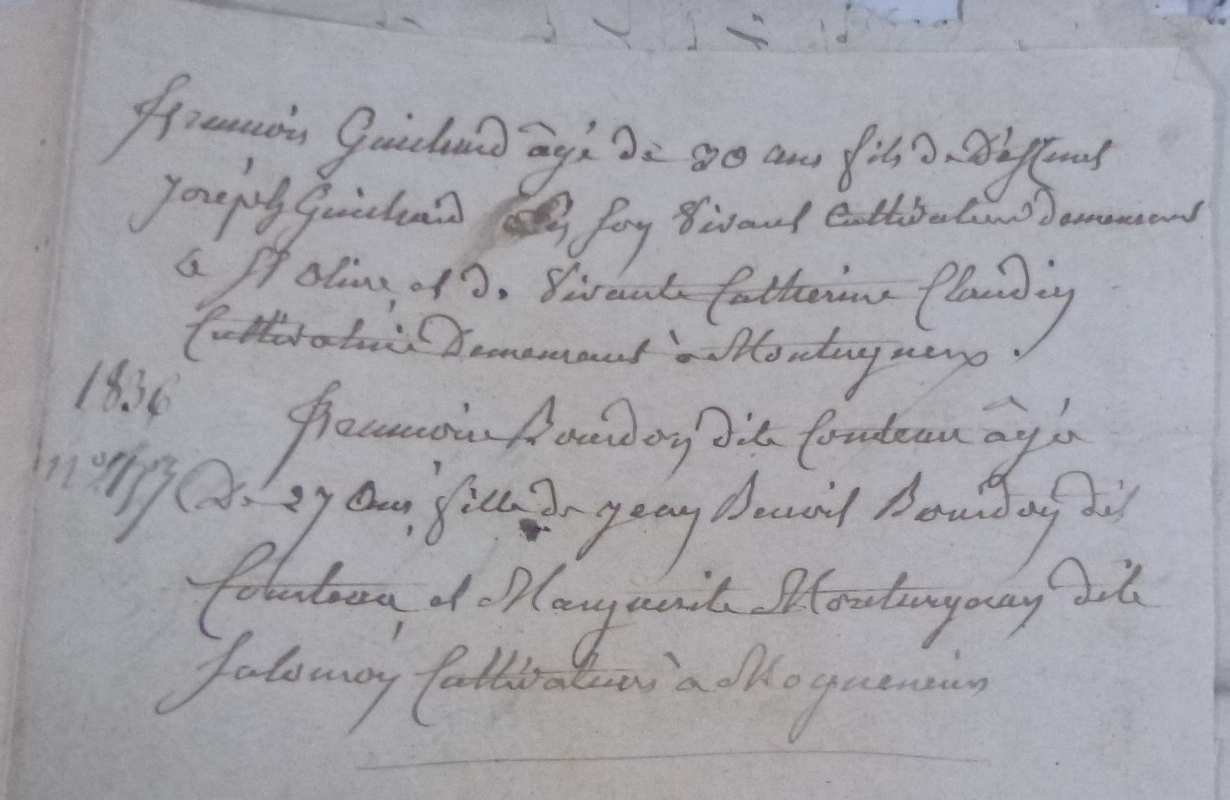 françois Guichard âgé de 30 ans fils de Défunt
joséph Guichard En son Vivant Cultivateur demeurant
à St Olive et de Vivante Catherine Claudin
Cultivatrice Demeurant à Monthyneux.
1836
françoise Bourdon dite Couteau âgée
n° 153 De 27 Ans, fille de jean Benoit Bourdon dit
Couteau, et Marguerite Monturynay dite
salomon Cultivateurs à Mogneneins